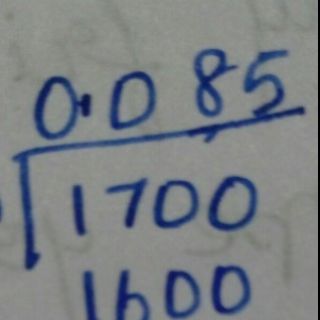 0.085
1700
1600